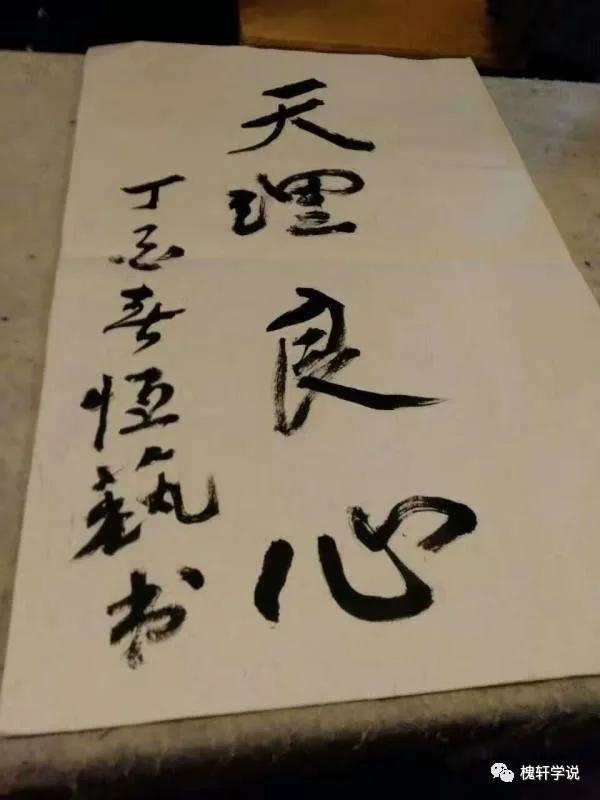 天理良心
丁酉春恒艺书
槐轩学说